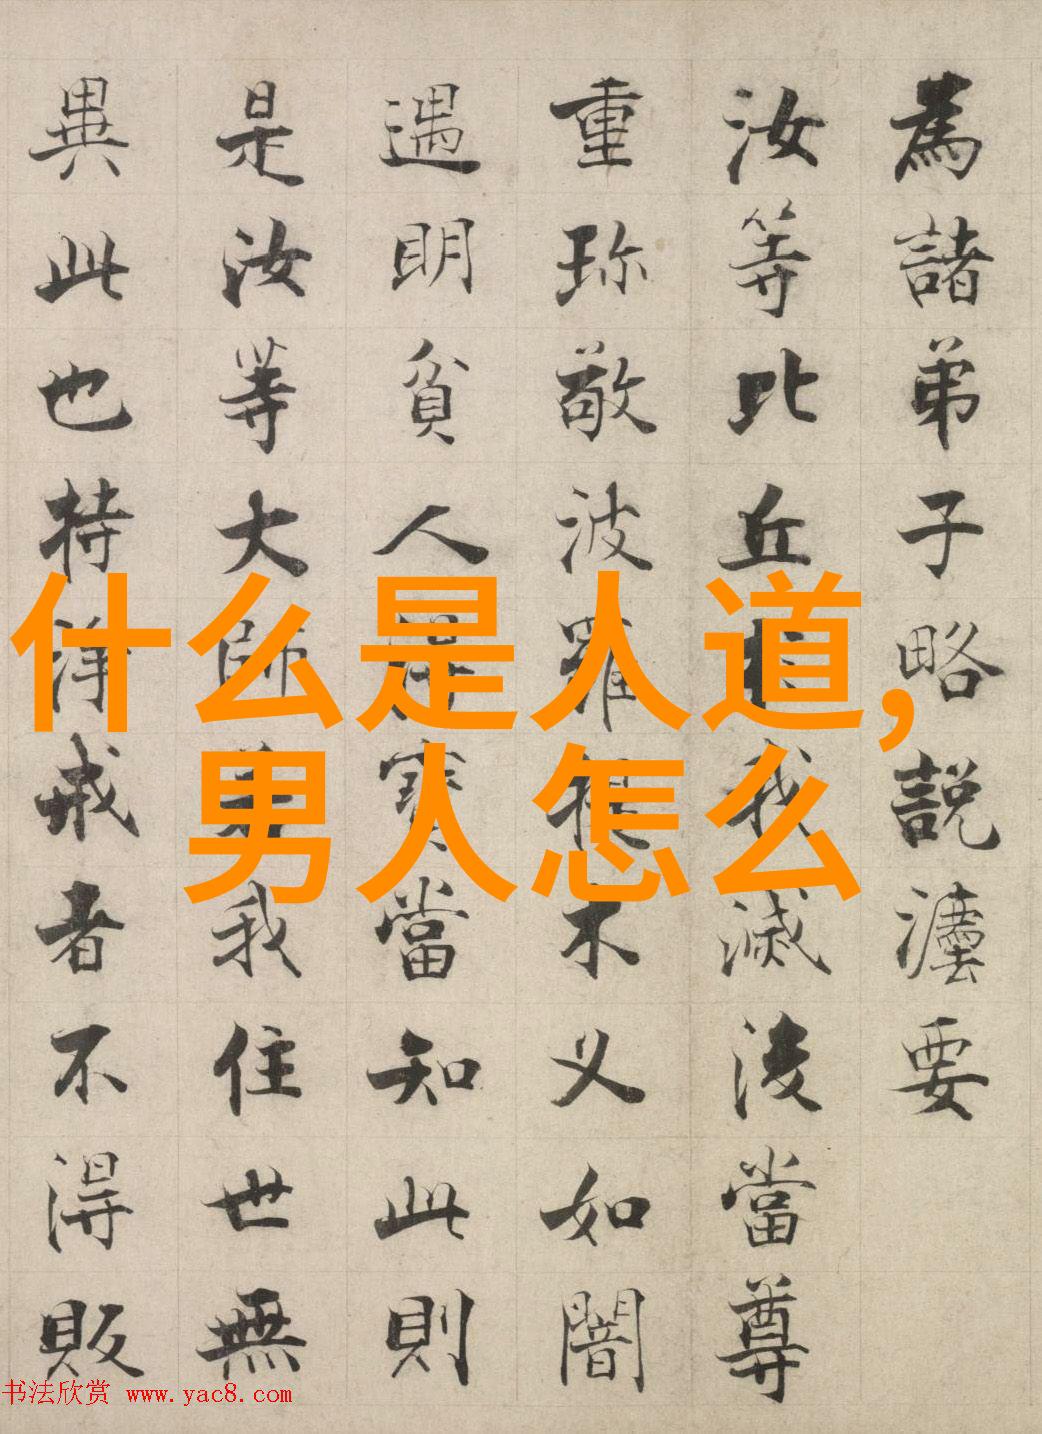 為諸弟子略說瀍要
汝等比丘我滅後當尊
重珎敬波羅提木叉如闇
遇明貧人得寶當知此則
是汝等大師若我住世無
異此也持淨戒者不得販
什么是人道,
男人怎么
书法欣赏 www.yac8.com